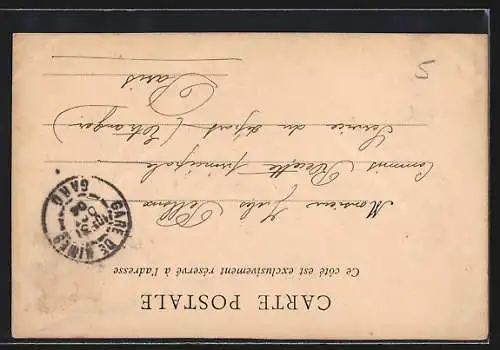 CARTE POSTALE
Ce côté est exclusivement réservé à l'adresse
Monsieur Jules
Commis Recette principale
Service du départ (Etranger)
Paris
GARE DE NIMES
04
GARD
5